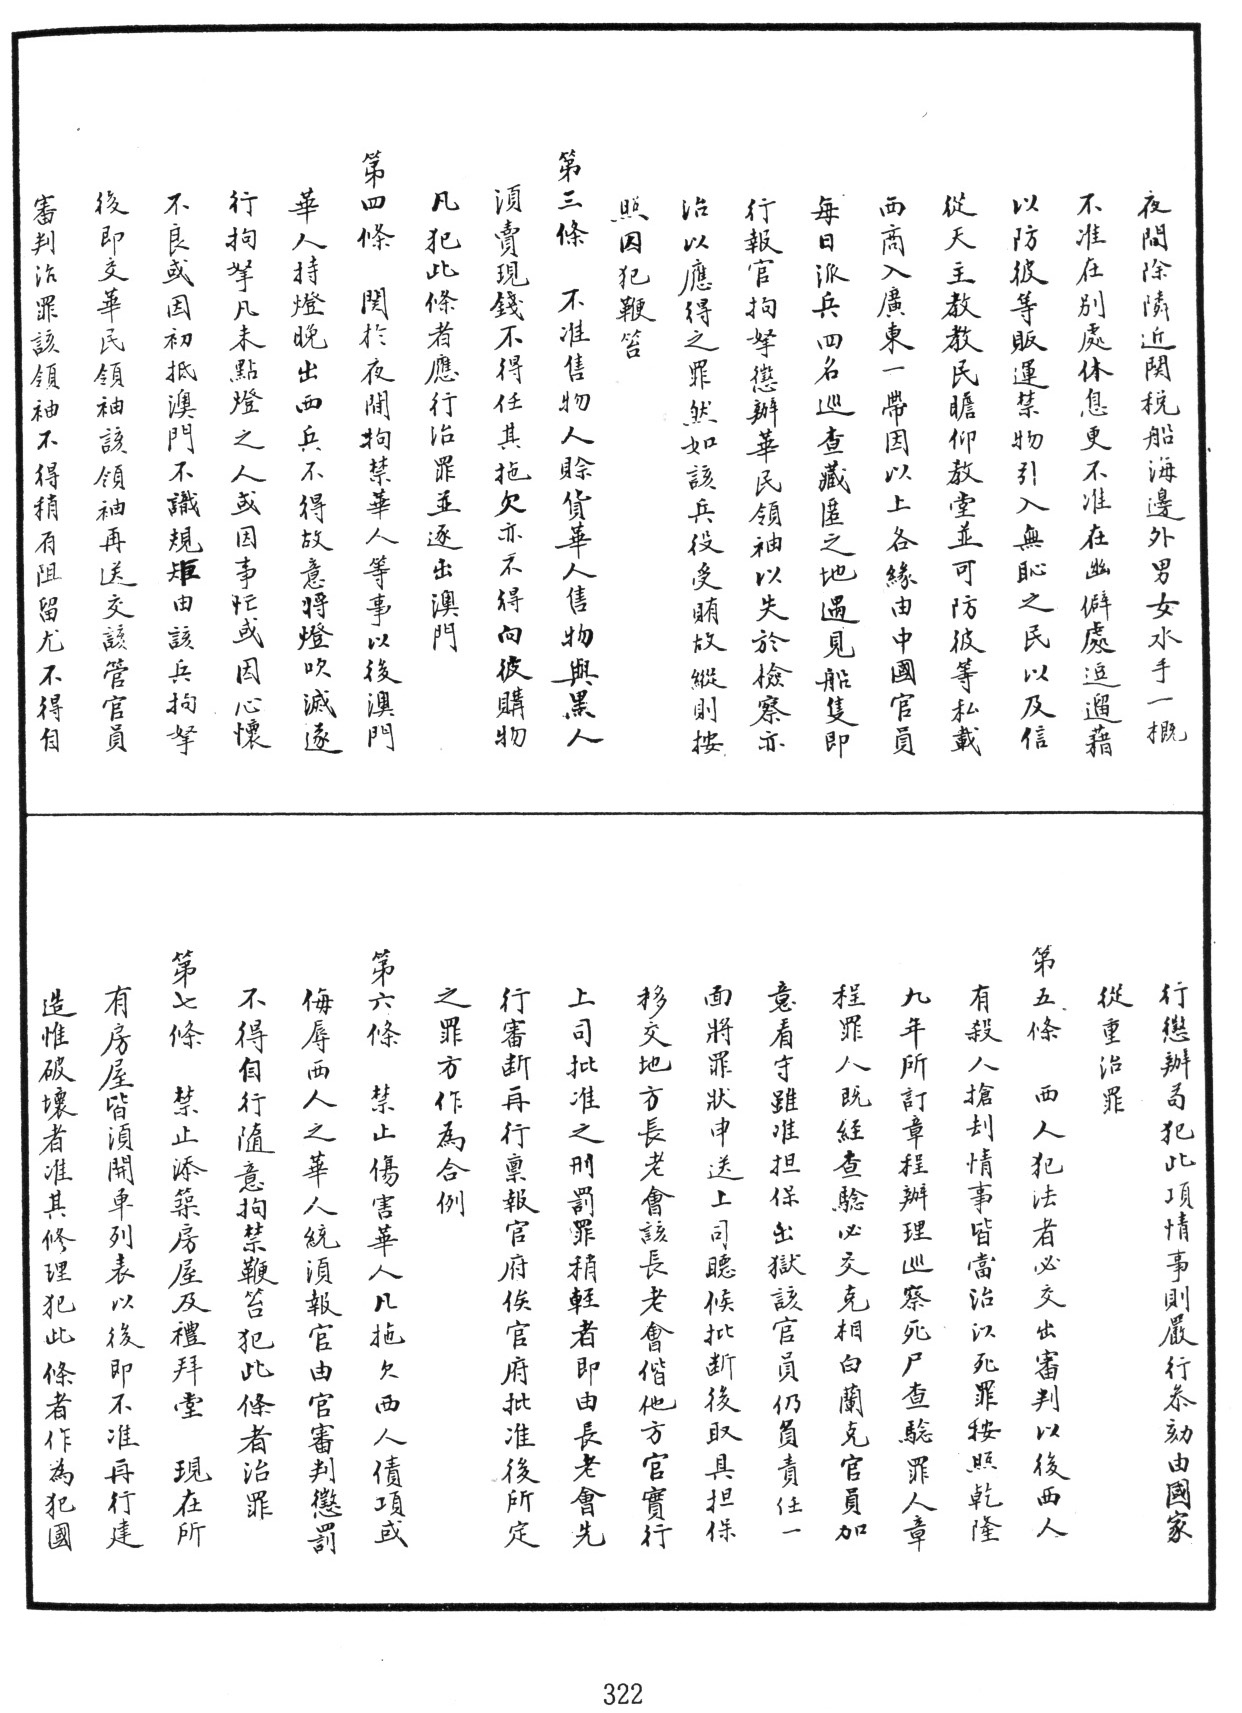 夜間除隣近関稅船海邊外男女水手一概
不准在別處休息更不准在幽僻處逗遛藉
以防彼等販運禁物引入無恥之民以及信
從天主教教民瞻仰教堂並可防彼等私載
西商入廣東一帶因以上各緣由中國官員
每日派兵四名巡查藏匿之地遇見船隻即
行報官拘拏懲辦華民領袖以失於檢察亦
治以應得之罪然如該兵役受賄故縱則按
照因犯鞭笞
第三條 不准售物人賒貨華人售物與黑人
須賣現錢不得任其拖欠亦不得向彼購物
凡犯此條者應行治罪並逐出澳門
第四條 関於夜間拘禁華人等事以後澳門
華人持燈晚出西兵不得故意將燈吹滅遂
行拘拏凡未點燈之人或因事忙或因心懷
不良或因初抵澳門不識規矩由該兵拘拏
後即交華民領袖該領袖再送交該管官員
審判治罪該領袖不得稍有阻留尤不得自
行懲辦苟犯此項情事則嚴行叅劾由國家
從重治罪
第五條 西人犯法者必交出審判以後西人
有殺人搶刦情事皆當治以死罪按照乾隆
九年所訂章程辦理巡察死尸查驗罪人章
程罪人既經查驗必交克相白蘭克官員加
意看守雖准担保出獄該官員仍負責任一
面將罪狀申送上司聽候批斷後取具担保
移交地方長老會該長老會偕他方官實行
上司批准之刑罰罪稍輕者即由長老會先
行審斷再行禀報官府俟官府批准後所定
之罪方作為合例
第六條 禁止傷害華人凡拖欠西人債項或
侮辱西人之華人統須報官由官審判懲罰
不得自行隨意拘禁鞭笞犯此條者治罪
第七條 禁止添築房屋及禮拜堂 現在所
有房屋皆須開單列表以後即不准再行建
造惟破壞者准其修理犯此條者作為犯國
322